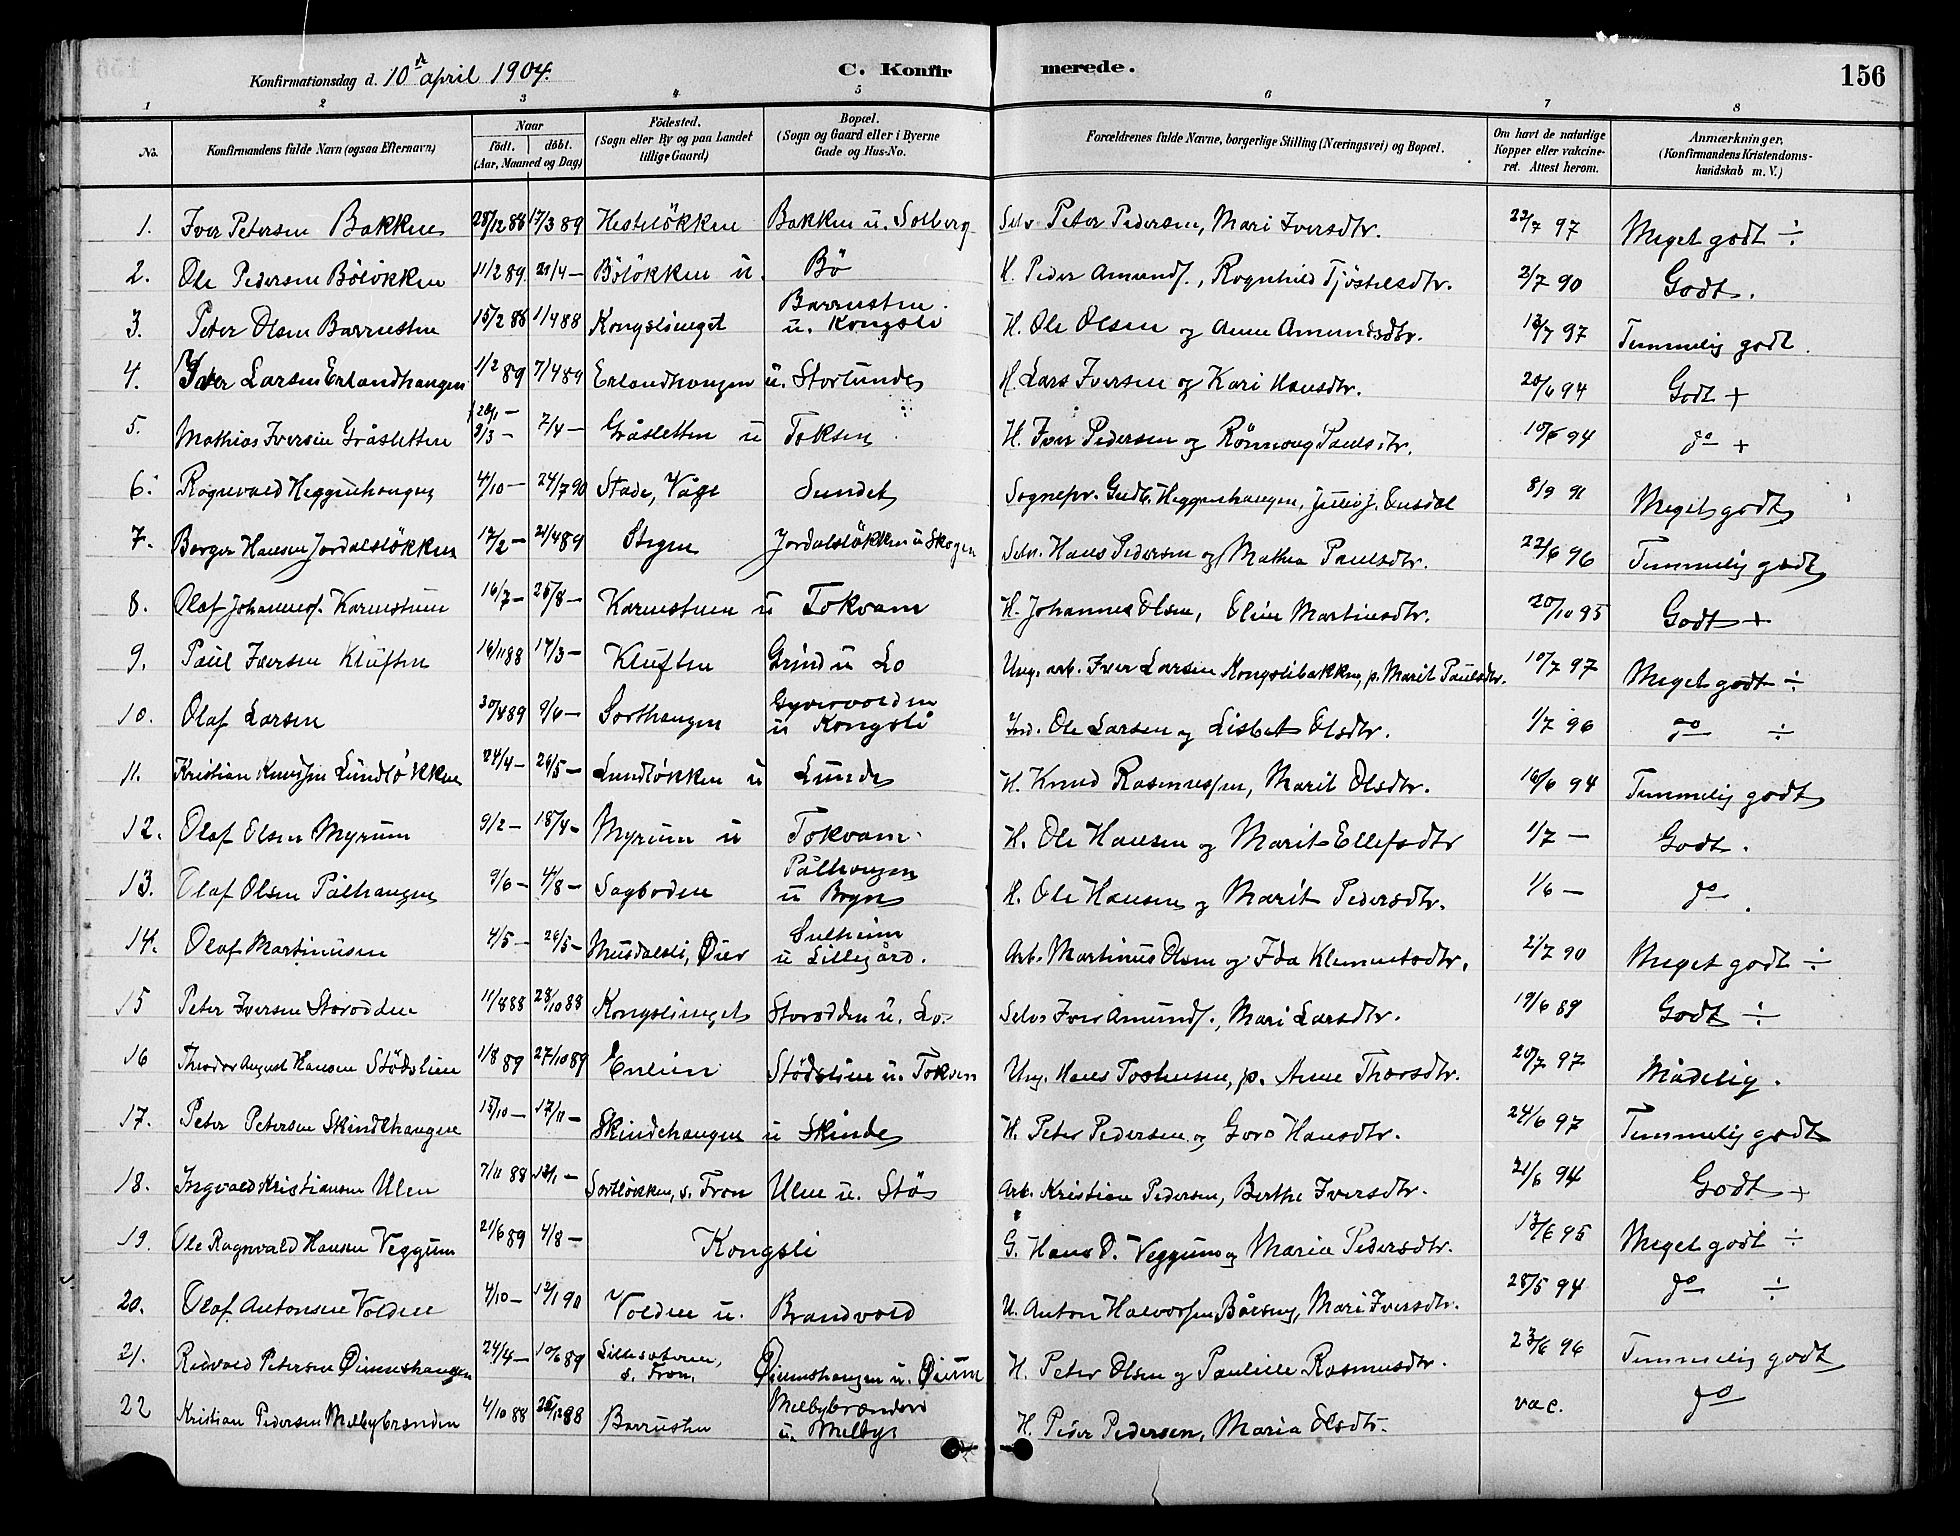 Konfirmationsdag d. 10de april 1904.
C. Konfirmerede.
156
1 2 3 4 5 6 7 8
No.
Konfirmandens fulde Navn (ogsaa Efternavn)
Naar
födt. döbt.
(Aar, Maaned og Dag)
Födested.
(Sogn eller By og paa Landet
tillige Gaard)
Bopæl.
(Sogn og Gaard eller i Byerne
Gade og Hus-No.
Forældrenes fulde Navne, borgerlige Stilling (Næringsvei) og Bopæl.
Om havt de naturlige
Kopper eller vakcine-
ret. Attest herom.
Anmærkninger,
(Konfirmandens Kristendoms-
kundskab m. V.)
1. Iver Petersen Bakken 28/12 88 17/3 89 Hesteløkken Bakken u. Solberg Selv. Peter Pedersen, Mari Iversdtr. 22/7 97 Meget godt ÷
2. Ole Pedersen Böløkken 11/2 89 21/4 — Böløkken u. Bö H. Peder Amunds., Rognhild Tjöstelsdtr. 2/7 90 Godt.
3. Peter Olsen Barrusten 15/2 88 1/4 88 Kongslieget Barrusten u. Kongsli H. Ole Olsen og Anne Amundsdtr. 13/7 97 Temmelig godt.
4. Iver Larsen Erlandhaugen 1/2 89 7/4 89 Erlandhaugen u. Storlunde H. Lars Iversen og Kari Hansdtr. 20/6 94 Godt +
5. Mathias Iversen Gråsletten 28/1 — 3/3 — 7/4 — Gråsletten u Toksen H. Iver Pedersen og Rönnoug Paulsdtr. 19/6 94 do +
6. Ragnvald Heggenhaugen 4/10 — 24/7 90 Stade, Våge Sundet Sognepr. Gudb. Heggenhaugen, Ensdal 8/9 91 Meget godt
7. Borger Hansen Jordalsløkken 17/2 — 21/4 89 Stegen Jordalsløkken u Skogen Selv. Hans Pedersen og Mathea Paulsdtr. 22/6 96 Temmelig godt
8. Olaf Johannes. Karmstuen 16/7 — 25/8 — Karmstuen u Tokvam H. Johannes Olsen, Eline Martinsdtr. 20/10 95 Godt +
9. Paul Iversen Kluften 16/11 88 17/3 — Kluften Grind u Lo Ung. arb. Iver Larsen Kongslibakken, p. Marit Paulsdtr. 10/7 97 Meget godt ÷
10. Olaf Larsen 30/4 89 9/6 — Sorthaugen Gyvervolden u Kongsli Ind. Ole Larsen og Lisbet Olsdtr. 1/7 96 do ÷
11. Kristian Knudsen Lundløkken 24/4 — 26/5 — Lundløkken u Lunde H. Knud Rasmussen, Marit Olsdtr. 16/6 94 Temmelig godt
12. Olaf Olsen Myrum 9/2 — 18/4 — Myrum u Tokvam H. Ole Hansen og Marit Ellefsdtr 1/7 — Godt.
13. Olaf Olsen Pålhaugen 9/6 — 4/8 — Sagboden Pålhaugen u Bryn H. Ole Hansen og Marit Pedersdtr. 1/6 — do.
14. Olaf Martinusen 4/5 — 26/5 — Musdalsli, Öier Sulheim u Lillegård. Arb. Martinus Olsen og Ida Klemetsdtr. 2/7 90 Meget godt ÷
15 Peter Iversen Storodden 11/8 88 28/10 88 Kongslieget Storodden u. Lo. Selv. Iver Amunds., Mari Larsdtr. 19/6 89 Godt ÷
16 Theodor August Hansen Stödslien 1/8 89 27/10 89 Enlien Stödslien u. Toksen Ung. Hans Tostensen, p. Anne Thorsdtr. 20/7 97 Mådelig.
17. Peter Petersen Skindehaugen 15/10 — 17/11 — Skindehaugen u Skinde H. Peter Pedersen og Goro Hansdtr. 24/6 97 Temmelig godt
18. Ingvald Kristiansen Ulen 7/11 88 13/1 — Sortløkken, s. Fron Ulen u. Stö Arb. Kristian Pedersen, Berthe Iversdtr. 21/6 94 Godt +
19. Ole Ragnvald Hansen Veggum 21/6 89 4/8 — Kongsli G. Hans O. Veggum og Maria Pedersdtr. 13/6 95 Meget godt ÷
20. Olaf Antonsen Volden 4/10 — 12/1 90 Volden u. Brandvold U. Anton Halvorsen Båeseng, Mari Iversdtr. 28/5 94 do ÷
21. Reidvald Petersen Öiumshaugen 24/4 — 10/6 89 Lillesæteren, s. Fron. Öiumshaugen u. Öium H. Peter Olsen og Pauline Rasmusdtr. 23/6 96 Temmelig godt
22 Kristian Pedersen Melbybrænden 4/10 88 26/12 88 Barrusten Melbybrænden u. Melby H. Peder Pedersen, Maria Olsdtr. vac. do